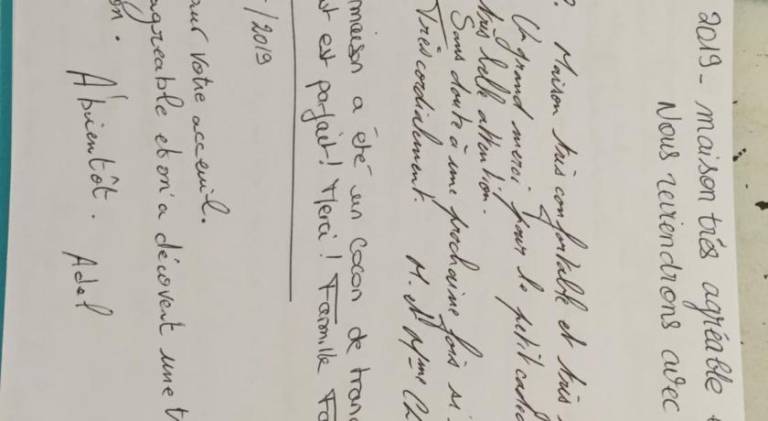 2019 - maison très agréable
Nous reviendrons avec
Maison très confortable et très
Un grand merci pour le petit
très belle attention.
Sans doute à une prochaine fois
Très cordialement. M. et Mme
maison a été un cocon de
est parfait! Merci! Famille
/2019
votre acceuil.
agréable et on a découvert une
A bientôt. Adel